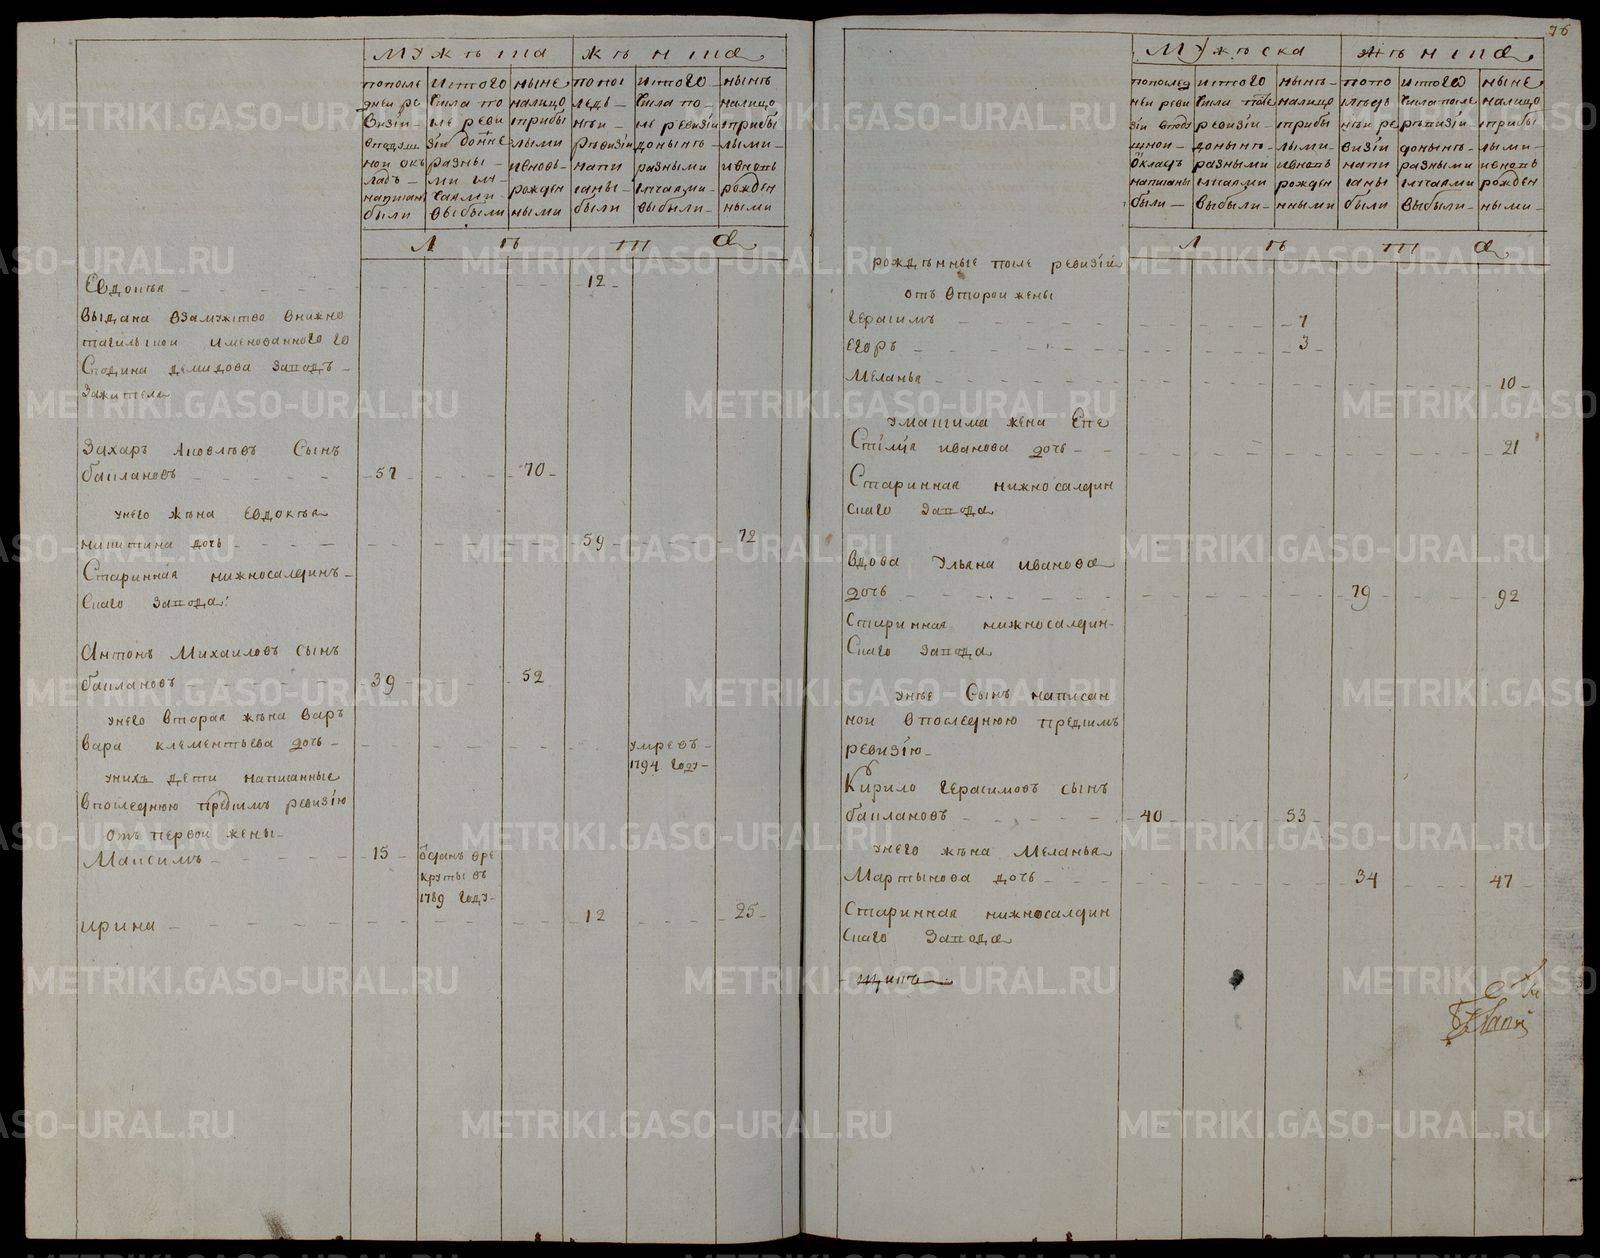 76
мужеска женска
пополе
дней ре
визіи
вподуш
ной окъ
ладъ
написан
были
итого
было по
ле реви
зіи донне
разны
ми слу
чаями
выбыли
ныне
налицо
сприбы
лыми
ивновь
рожден
ными
попос
ледъ
неи
ревизіи
напи
саны
были
итого
была по
ле ревизіи
донынъ
разными
случаями
выбыли
нынъ
налицо
сприбы
лыми
ивновь
рожден
ными
Л ѣ т а
Евдокѣя 12
выдана взамужство внижно
тагильской именованного го
Сподина демидова заводъ
зажителя
Захаръ Яковлѣвъ Сынъ
баклановъ 57 70
унего жѣна Евдокѣя
никитина дочь 59 72
Старинная нижносалдинъ
Скаго Завода
Антонъ Михаиловъ сынъ
баклановъ 39 52
унего вторая жѣна варъ
вара клементьева дочь умре въ
1794 году
унихъ дети написанные
впоследнюю предъимъ ревизію
отъ первои жены
Максимъ 15 отданъ вре
круты въ
1789 году
ирина 12 25
мужеска женска
пополед
ней реви
зіи вподу
шной
окладъ
написаны
были
итого
была после
ревизіи
донынъ
разными
случаями
выбыли
нынъ
налицо
сприбы
лыми
ивновь
рожден
нными
попо
слѣдъ
неи ре
визіи
напи
саны
были
итого
была после
ревизіи
донынъ
разными
случаями
выбыли
ныне
налицо
сприбы
лыми
ивновь
рожден
ными
Л ѣ т а
рождѣнные после ревизіи
отъ второи жены
Герасимъ 7
Егоръ 3
Меланья 10
умаксима жена Епе
Стімѣя иванова дочь 21
Старинная нижносалдин
Скаго Завода
вдова Ульяна иванова
дочь 79 92
Старинная нижносалдин
Скаго Завода
унѣе Сынъ написан
нои впоследнюю предъимъ
ревизію
Кирило Герасимовъ сынъ
баклановъ 40 53
унего жѣна Меланья
Мартынова дочь 34 47
Старинная нижносалдин
Скаго Завода
METRIKI.GASO-URAL.RU